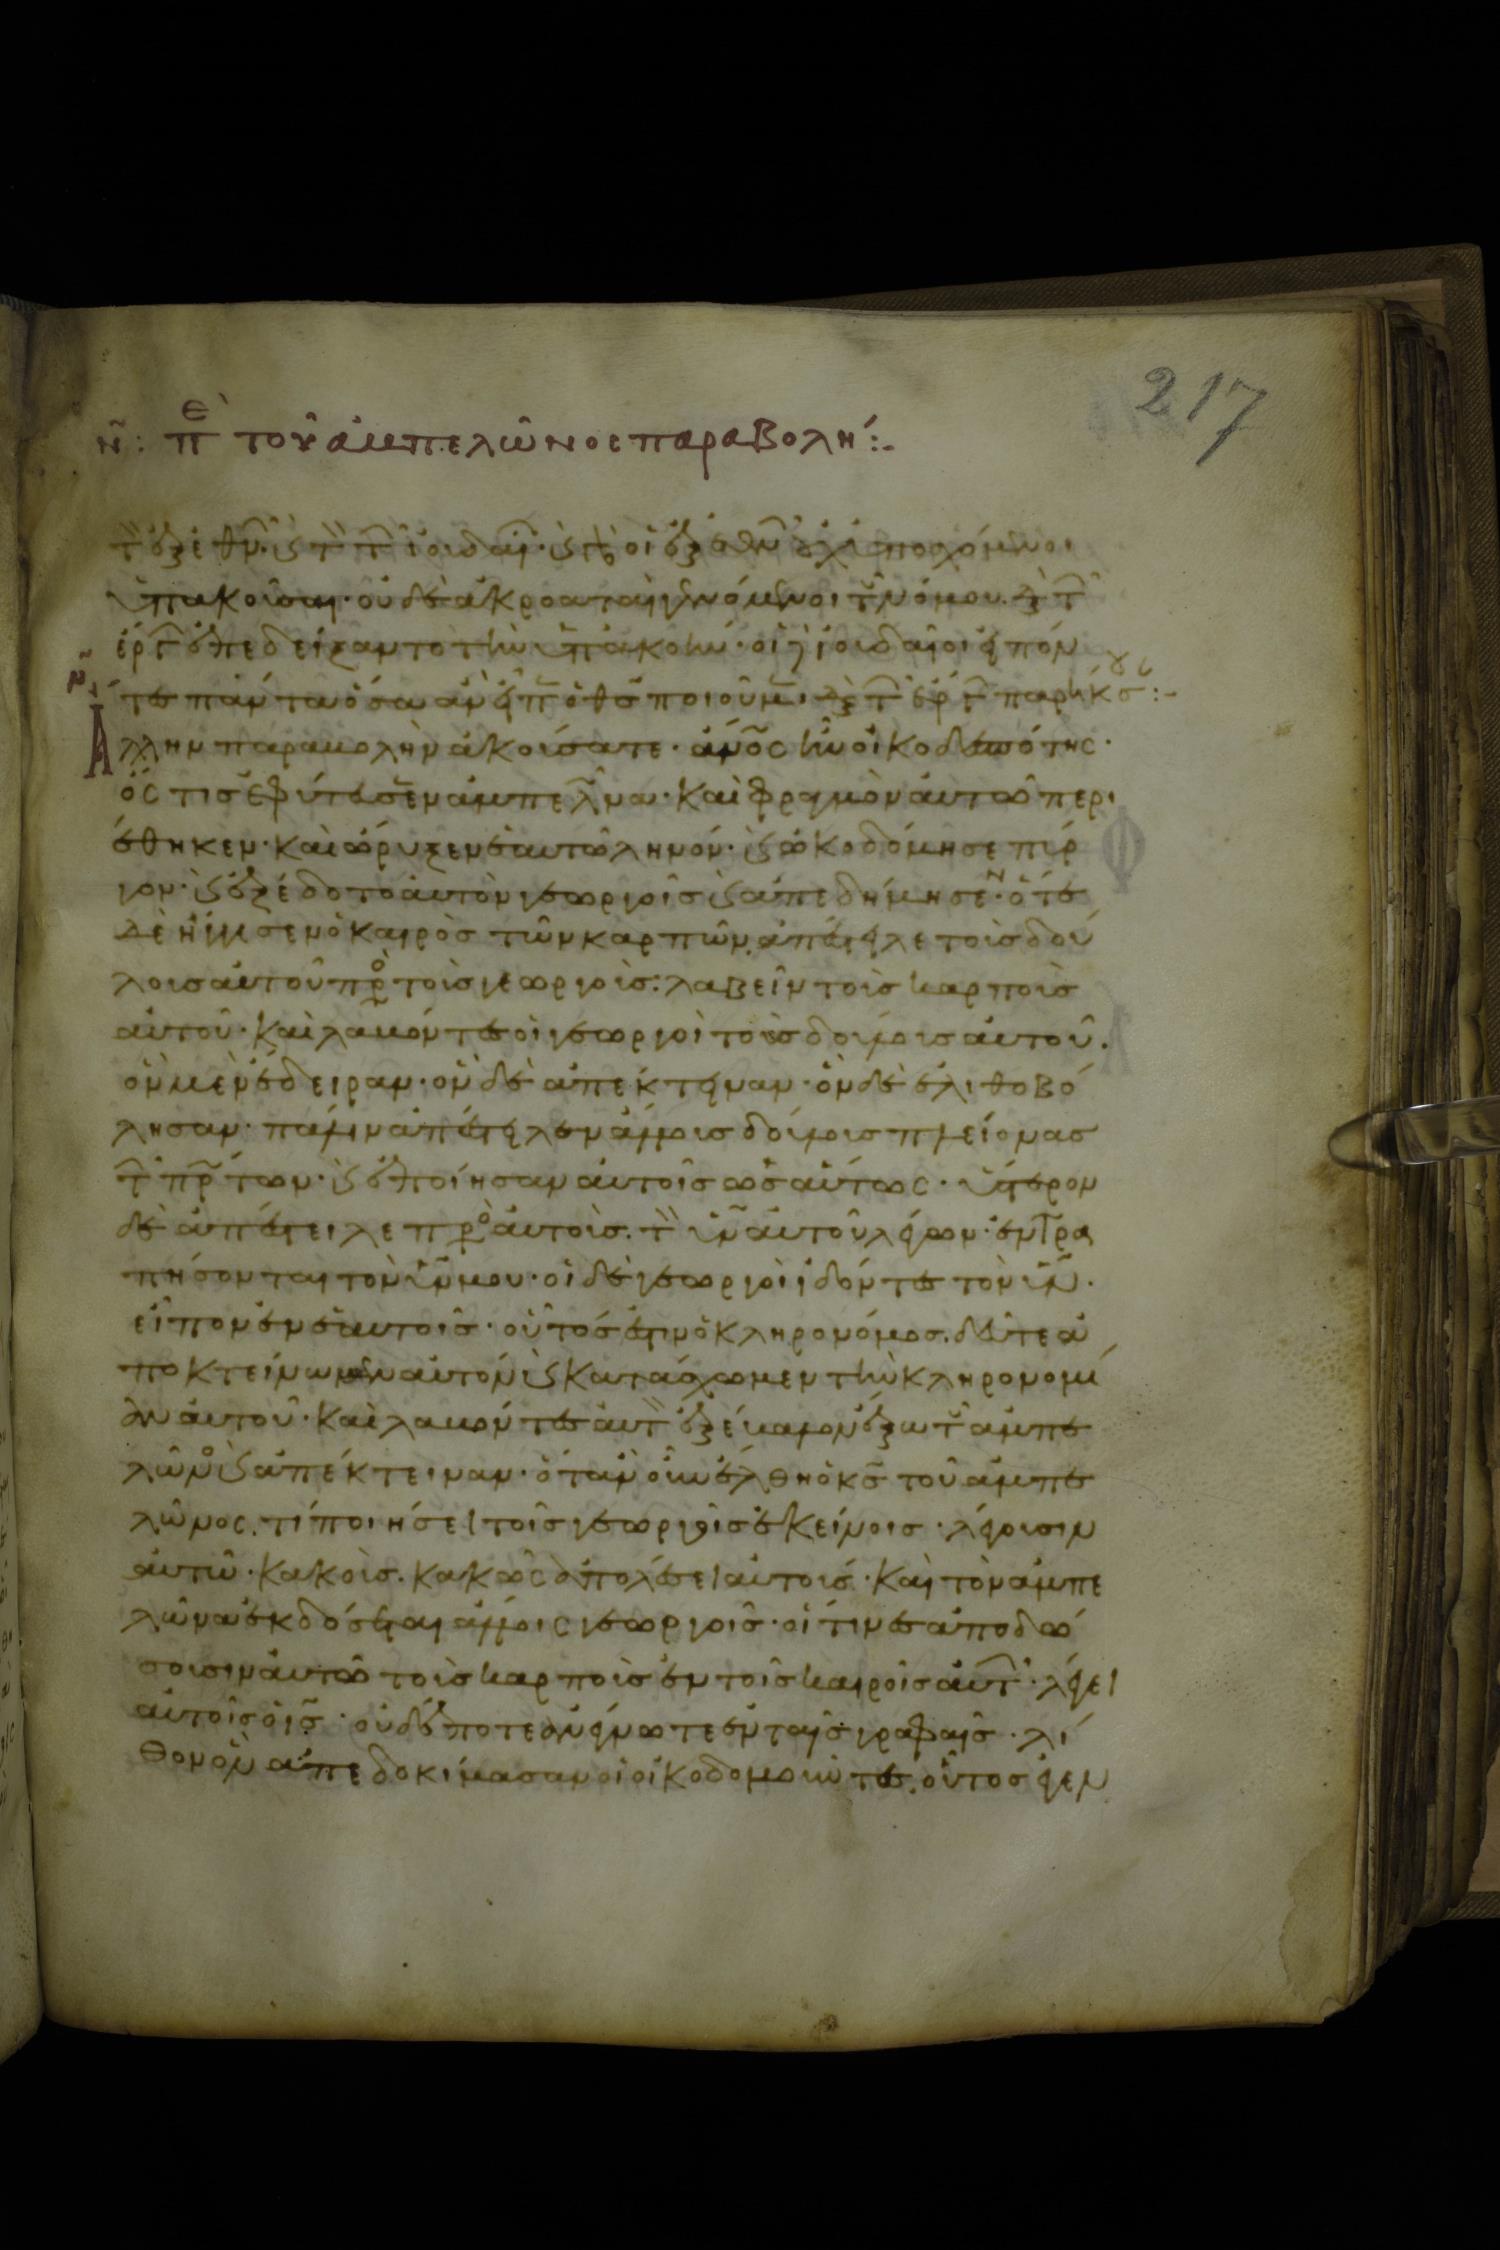 217
ν̃: πὲ τοῦ ἀμπελῶνος παραβολή:-
ὑπακοῦσαι· οὐδὲ ἀκροαταὶ γενόμενοι τοῦ νόμου
ἐπεδείξαντο τὴν ὑπακοήν· οἱ ἰουδαῖοι εἰπόν
τες πάντα ὅσα ἂν εἴπῃ ὁ θς̃ ποιοῦμεν
Ἄλλην παραβολὴν ἀκούσατε· ἄνο̃ς ἦν οἰκοδεσπότης·
ὅς τις ἐφύτευσεν ἀμπελῶνα· καὶ φραγμὸν αὐτῶ περι
έθηκεν· καὶ ὤρυξεν ἐν αὐτῶ ληνόν· ϗ ὠκοδόμησε πύρ
γον· ϗ ἐξέδοτο αὐτὸν γεωργοῖς ϗ ἀπεδήμησεν· ὅτε
δὲ ἤγγισεν ὁ καιρὸς τῶν καρπῶν, ἀπέστειλε τοὺς δού
λους αὐτοῦ πρὸ τοὺς γεωργούς· λαβεῖν τοὺς καρποὺς
αὐτοῦ· καὶ λαβόντες οἱ γεωργοὶ τοὺς δούλους αὐτοῦ.
ὃν μὲν ἔδειραν· ὃν δὲ ἀπέκτειναν· ὃν δὲ ἐλιθοβό
λησαν· πάλιν ἀπέστειλεν ἄλλους δούλους πλείονας
τῶν πρώτων· ϗ ἐποίησαν αὐτοῖς ὡσαύτως· ὕστερον
δὲ ἀπέστειλε πρὸ αὐτούς. τὸν υἱν̃ αὐτοῦ λέγων· ἐντρα
πήσονται τὸν υἱν̃ μου· οἱ δὲ γεωργοὶ ἰδόντες τὸν υἱν̃.
εἶπον ἐν ἑαυτοῖς· οὗτός ἐστιν ὁ κληρονόμος. δεῦτε ἀ
ποκτείνωμεν αὐτόν ϗ κατάσχωμεν τὴν κληρονομί
αν αὐτοῦ· καὶ λαβόντες αὐτὸν ἐξέβαλον ἔξω τοῦ ἀμπε
λῶνος ϗ ἀπέκτειναν· ὅταν οὖν ἔλθη ὁ κς̃ τοῦ ἀμπε
λῶνος. τί ποιήσει τοῖς γεωργοῖς ἐκείνοις· λέγουσιν
αὐτῶ· κακοὺς κακῶς ἀπολέσει αὐτούς· καὶ τὸν ἀμπε
λῶνα ἐκδόσεται ἄλλοις γεωργοῖς· οἵτινες ἀποδώ
σουσιν αὐτῶ τοὺς καρποὺς ἐν τοῖς καιροῖς αὐτῶν· λέγει
αὐτοῖς ὁ ις̃· οὐδέποτε ἀνέγνωτε ἐν ταῖς γραφαῖς· λί
θον ὃν ἀπεδοκίμασαν οἱ οἰκοδομοῦντες. οὗτος ἐγεν